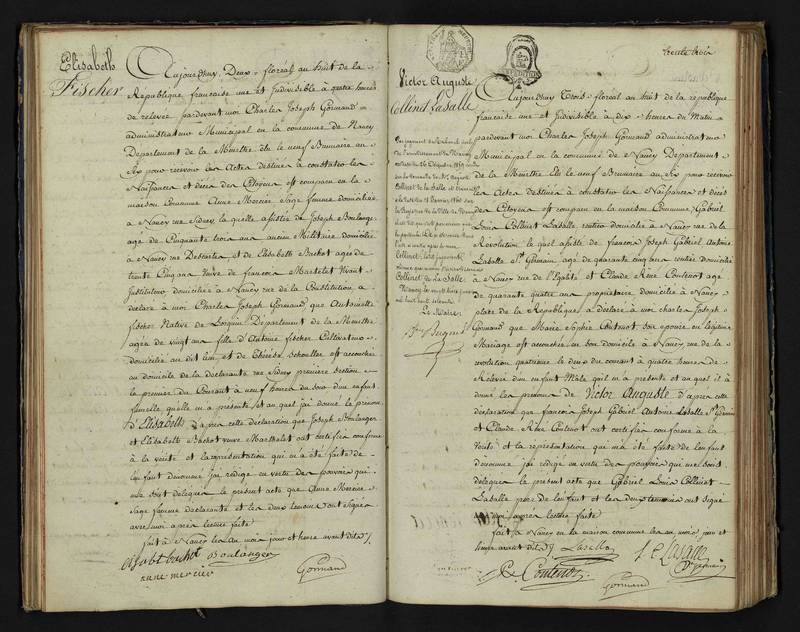 Elisabeth
Fischer
Aujourdhuy Deux floréal an huit de la
Republique francaise une et Indivisible à quatre heures
de relevée pardevant moi Charles Joseph Gormand
administrateur Municipal en la commune de Nancy
Departement de la Meurthe élu le neuf Brumaire an
Six pour recevoir les Actes destinés à constater les
Naissances et décès des Citoyens est comparu en la
maison Commune Anne Mercier Sage femme domiciliée
à Nancy rue Sidney la quelle assistée de Joseph Boulanger
agé de Cinquante trois ans ancien Militaire domicilié
à Nancy rue Descartes et de Elisabeth Bachot agée de
trente Cinq ans Veuve de francois Martelet Vivant
Instituteur domiciliée à Nancy rue de la Constitution a
déclaré à moi Charles Joseph Gormand, que Antoinette
fischer Native de Lorquin Département de la Meurthe
agée de vingt ans fille d'Antoine fischer Cultivateur
domicilié au dit lieu et de Thérèse Schouller est accouchée
au domicile de la déclarante rue Sidney première Section
le premier du Courant à neuf heures du soir d'un enfant
femelle, quelle m'a présenté et au quel j'ai donné le prénom
d'Elisabeth D'après cette déclaration que Joseph Boulanger
et Elisabeth Bachot veuve Marthelet ont certifiée conforme
à la verité et la représentation qui m'a été faite de
l'enfant denommé j'ai rédigé en vertu des pouvoirs qui
me sont delegués le présent acte que Anne Mercier
Sage femme declarante et les deux temoins ont Signés
avec moi après lecture faite
fait à Nancy les an mois jour et heure avant dits
Elisabt bachot Boulanger
anne mercier Gormand
trente trois
Victor Auguste
Collinet Lasalle
Par jugement du tribunal civil
de l'arrondissement de Nancy
Collinet de La Salle
mil huit cent soixante
Le Maire
Aujourdhuy Trois floréal an huit de la republique
francaise une et Indivisible à dix heures du Matin
pardevant moi Charles Joseph Gormand administrateur
Municipal en la commune de Nancy Département
de la Meurthe Elu le neuf Brumaire an Six pour recevoir
les Actes destinés à constater les Naissances et décès
des Citoyens est comparu en la maison Commune Gabriel
Louis Collinet Lasalle rentier domicilié à Nancy rue de la
Revolution le quel assisté de francois Joseph Gabriel Antoine
Lasalle St Germain agé de quarante cinq ans rentier domicilié
à Nancy rue de l'Egalité et Claude René Coutenot agé
de quarante quatre ans propriétaire domicilié à Nancy
place de la République, a déclaré à moi charles Joseph
Gormand que Marie Sophie Coutenot son epouse en légitime
Mariage est accouchée en son domicile à Nancy rue de la
revolution quatrieme le deux du courant à quatre heures de
Relevée d'un enfant Male qu'il m'a presenté et au quel il a
donné les prénoms de Victor Auguste d'après cette
déclaration que francois Joseph Gabriel Antoine Lasalle St Germain
et Claude René Coutenot ont certifiée conforme à la
Verité et la représentation qui m'a été faite de l'enfant
denommé j'ai rédigé en vertu des pouvoirs qui me sont
delegués le présent acte que Gabriel Louis Collinet
Lasalle pere de l'enfant et les deux temoins ont signé
avec moi après lecture faite
fait à Nancy en la maison commune les an mois jour et
heure avant dits Lasalle
Coutenot
Gormand